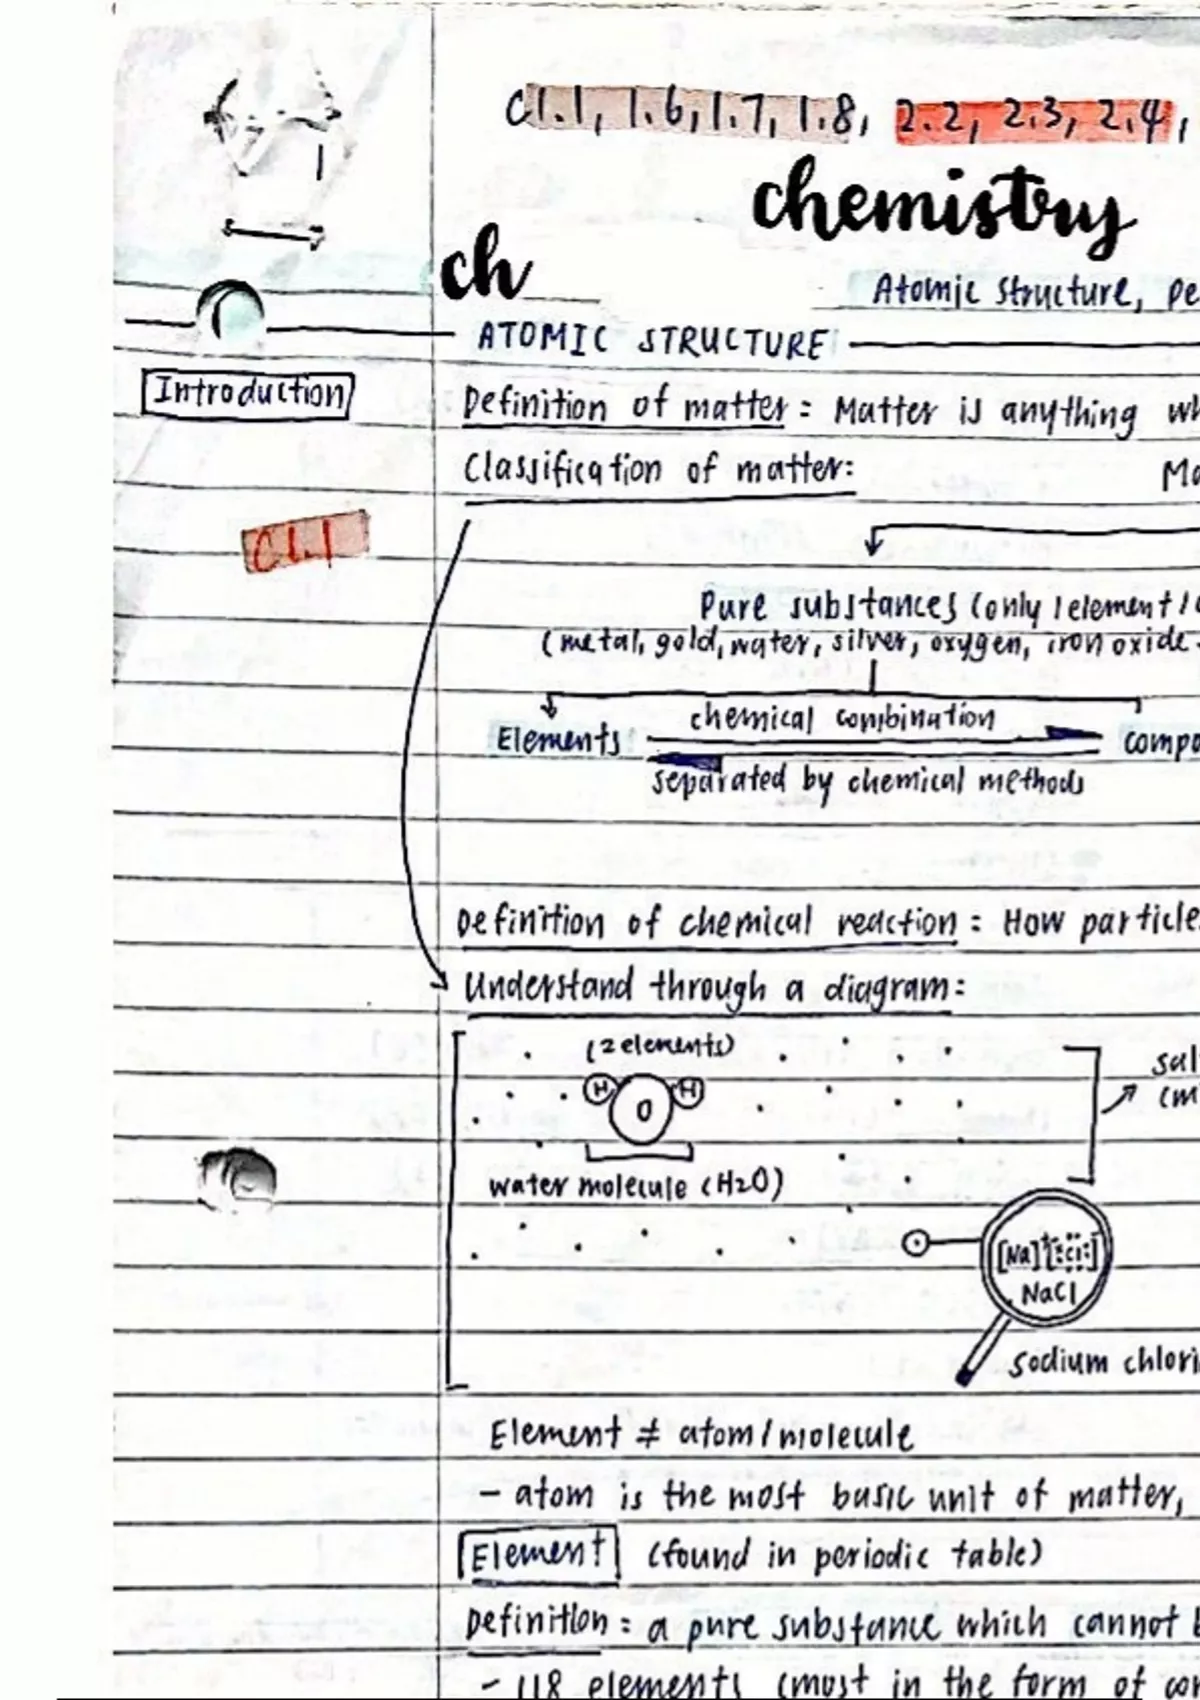 C1.1, 1.6, 1.7, 1.8, 2.2, 2.3, 2.4,
chemistry
ch
Atomic structure, pe
ATOMIC STRUCTURE
Introduction
Definition of matter: Matter is anything wh
Classification of matter: Ma
C1.1
Pure substances (only 1 element/c
(metal, gold, water, silver, oxygen, iron oxide
chemical combination
Elements compo
separated by chemical methods
Definition of chemical reaction: How particle
Understand through a diagram:
(2 elements)
sal
(m
H O H
water molecule (H2O)
[Na]+[:Cl:]
NaCl
sodium chlori
Element ≠ atom/molecule
- atom is the most basic unit of matter,
Element (found in periodic table)
Definition: a pure substance which cannot b
- 118 elements (most in the form of com